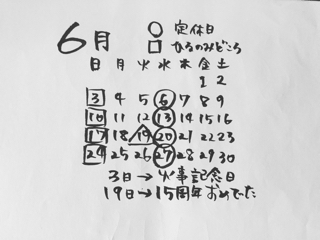 6月 ○ 定休日
□ ひるのみどころ
日 月 火 水 木 金 土
1 2
3 4 5 6 7 8 9
10 11 12 13 14 15 16
17 18 19 20 21 22 23
24 25 26 27 28 29 30
3日→火事記念日
19日→15周年おめでた